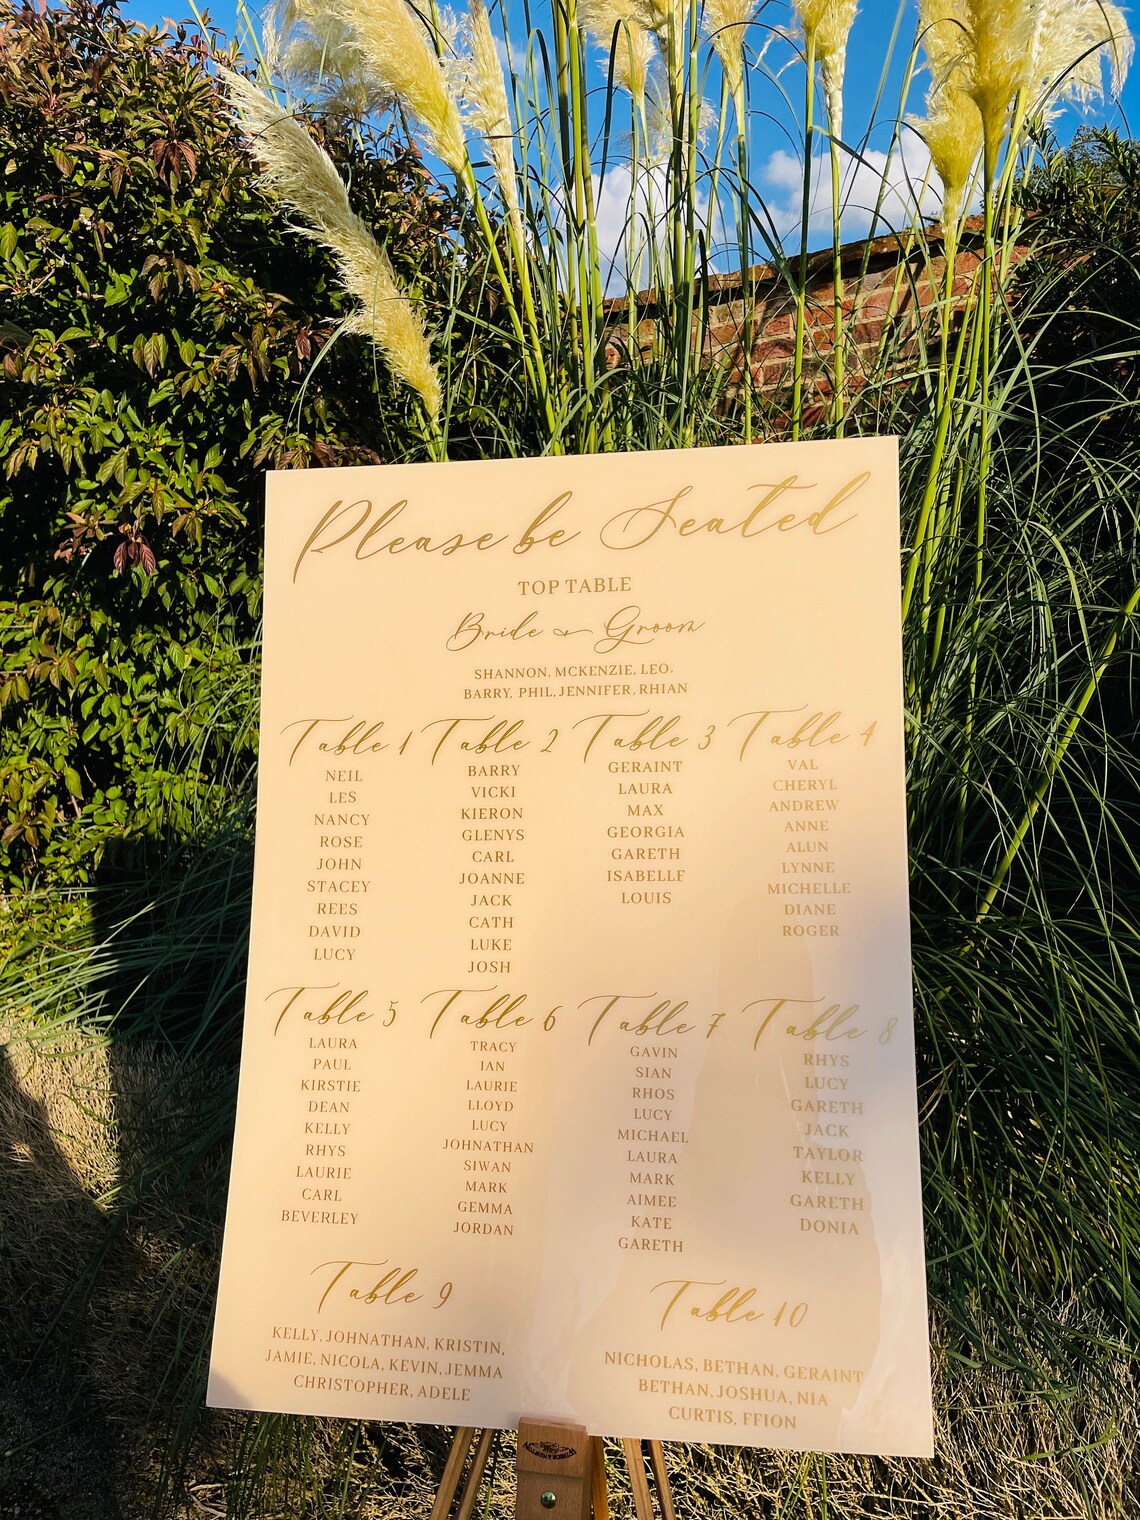 Please be Seated
TOP TABLE
Bride & Groom
SHANNON, MCKENZIE, LEO.
BARRY, PHIL, JENNIFER, RHIAN
Table 1
NEIL
LES
NANCY
ROSE
JOHN
STACEY
REES
DAVID
LUCY
Table 2
BARRY
VICKI
KIERON
GLENYS
CARL
JOANNE
JACK
CATH
LUKE
JOSH
Table 3
GERAINT
LAURA
MAX
GEORGIA
GARETH
ISABELLE
LOUIS
Table 4
VAL
CHERYL
ANDREW
ANNE
ALUN
LYNNE
MICHELLE
DIANE
ROGER
Table 5
LAURA
PAUL
KIRSTIE
DEAN
KELLY
RHYS
LAURIE
CARL
BEVERLEY
Table 6
TRACY
IAN
LAURIE
LLOYD
LUCY
JOHNATHAN
SIWAN
MARK
GEMMA
JORDAN
Table 7
GAVIN
SIAN
RHOS
LUCY
MICHAEL
LAURA
MARK
AIMEE
KATE
GARETH
Table 8
RHYS
LUCY
GARETH
JACK
TAYLOR
KELLY
GARETH
DONIA
Table 9
KELLY, JOHNATHAN, KRISTIN,
JAMIE, NICOLA, KEVIN, JEMMA
CHRISTOPHER, ADELE
Table 10
NICHOLAS, BETHAN, GERAINT
BETHAN, JOSHUA, NIA
CURTIS, FFION